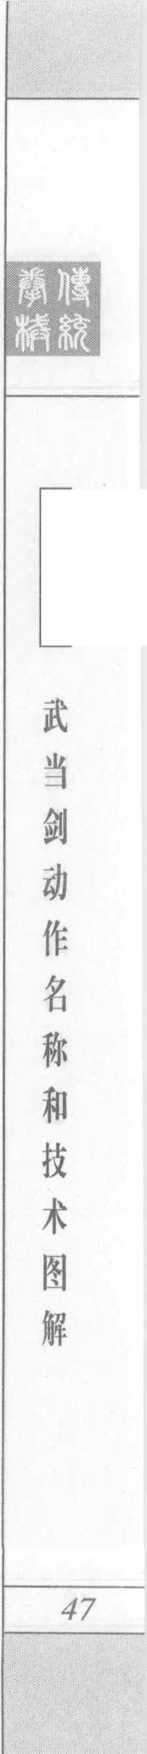 傳統
拳械
武当剑动作名称和技术图解
47